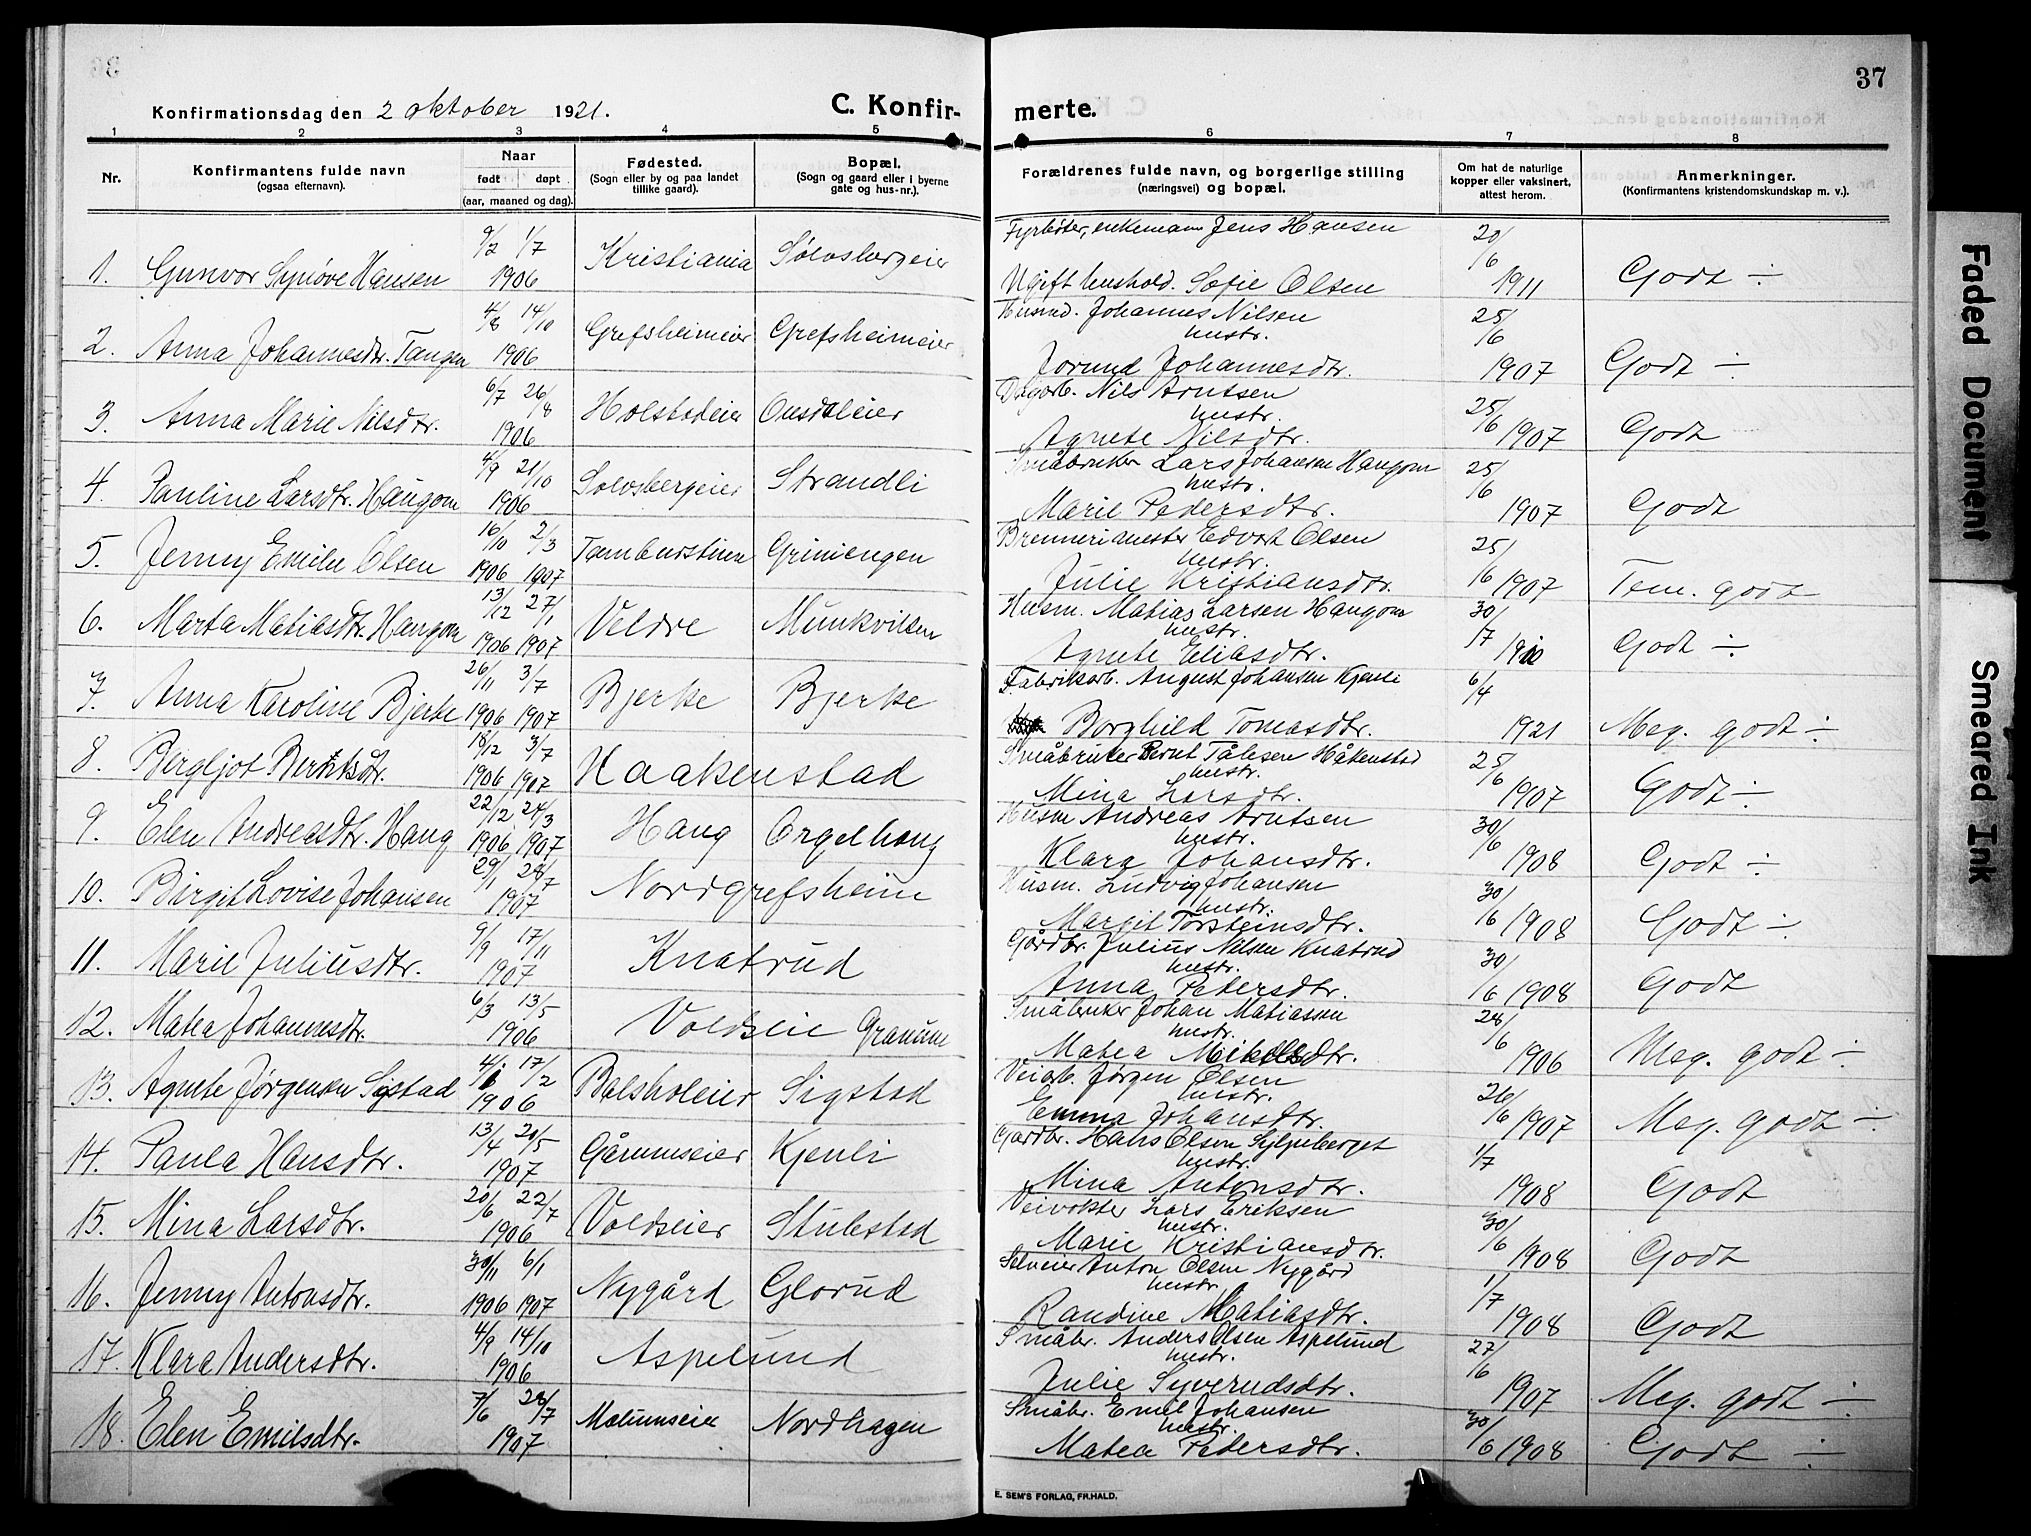 37
Konfirmationsdag den 2 oktober 1921.
C. Konfir-
merte.
1 2 3 4 5 6 7 8
Nr.
Konfirmantens fulde navn
(ogsaa efternavn).
Naar
født døpt
(aar, maaned og dag).
Fødested.
(Sogn eller by og paa landet
tillike gaard).
Bopæl.
(Sogn og gaard eller i byerne
gate og hus-nr.).
Forældrenes fulde navn, og borgerlige stilling
(næringsvei) og bopæl.
Om hat de naturlige
kopper eller vaksinert,
attest herom.
Anmerkninger.
(Konfirmantens kristendomskundskap m. v.).
Fyrbøter, enkemann Jens Hansen
1. Gunvor Synøve Hansen 9/2 1/7 1906 Kristiania Sølvsbergeier
Ugift hushold. Sofie Olsen 20/6 1911 Godt ÷
Husm. Johannes Nilsen
hustr.
2. Anna Johannesdtr. Tangen 4/8 14/10 1906 Grefsheimeier Grefsheimeier
Jorund Johannesdtr. 25/6 1907 Godt ÷
Dagarb. Nils Arntsen
hustr.
3. Anna Marie Nilsdtr. 6/7 26/8 1906 Holstadeier Onsdaleier
Agnete Nilsdtr. 25/6 1907 Godt
Småbruker Lars Johansen Haugom
hustr.
4. Pauline Larsdtr. Haugom 4/9 21/10 1906 Solvsbergeier Strandli
Marie Pedersdtr. 25/6 1907 Godt
Brennerimester Edvart Olsen
hustr.
5. Jenny Emilie Olsen 16/10 2/3 1906 1907 Tamburstuen Griniengen
Julie Kristiansdtr. 25/6 1907 Tem. godt
Husm. Matias Larsen Haugom
hustr.
6. Marta Matiasdtr. Haugom 13/12 27/1 1906 1907 Veldre Munkvilsen
Agnete Eliasdtr. 30/7 1910 Godt ÷
Fabrikarb. August Johansen Kjenli
7. Anna Karoline Bjerke 26/11 3/7 1906 1907 Bjerke Bjerke
Borghild Tomasdtr. 6/4 1921 Meg. godt ÷
Småbruker Bernt Tålesen Håkenstad
hustr.
8. Bergljot Berntsdtr. 18/12 3/7 1906 1907 Haakenstad
Mina Larsdtr. 25/6 1907 Godt ÷
Husm Andreas Arntsen
hustr.
9. Elen Andreasdtr. Haug 22/12 24/3 1906 1907 Haug Orgelhaug
Klara Johansdtr. 30/6 1908 Godt ÷
Husm. Ludvig Johansen
hustr.
10. Birgit Lovise Johansen 29/1 28/7 1907 Nordgrefsheim
Margit Torsteinsdtr. 30/6 1908 Godt ÷
Gårdbr. Julius Nilsen Knatrud
hustr.
11. Marie Juliusdtr. 9/9 17/11 1907 Knatrud
Anna Petersdtr. 30/6 1908 Godt
Småbruker Johan Matiassen
hustr.
12. Matea Johannesdtr. 6/3 13/5 1906 Voldseie Granum
Matea Mikelsdtr. 28/6 1906 Meg. godt ÷
Veiarb. Jørgen Olsen
hustr.
13. Agnete Jørgensen Sigstad 4/1 17/2 1906 Balsholeier Sigstad
Emma Johansdtr. 26/6 1907 Meg. godt ÷
Gårdbr. Hans Olsen Syljuberget
hustr.
14. Paula Hansdtr. 13/4 20/5 1907 Gårumseier Kjenli
Mina Antonsdtr. 1/7 1908 Godt
Veivokter Lars Eriksen
hustr.
15. Mina Larsdtr. 20/6 22/7 1906 Voldseier Stubstad
Marie Kristiansdtr. 30/6 1908 Godt
Selveier Anton Olsen Nygård
hustr.
16. Jenny Antonsdtr. 30/11 6/1 1906 1907 Nygård Glorud
Randine Matiasdtr. 1/7 1908 Godt
Småbr. Anders Olsen Aspelund
hustr.
17. Klara Andersdtr. 4/9 14/10 1906 Aspelund
Julie Syverudsdtr. 27/6 1907 Meg. godt ÷
Småbr. Emil Johansen
hustr.
18. Elen Emilsdtr. 7/6 28/7 1907 Mælumseie Nordhagen
Matea Pedersdtr. 30/6 1908 Godt ÷
E. SEM'S FORLAG, FR.HALD.
Faded Document
Smeared Ink